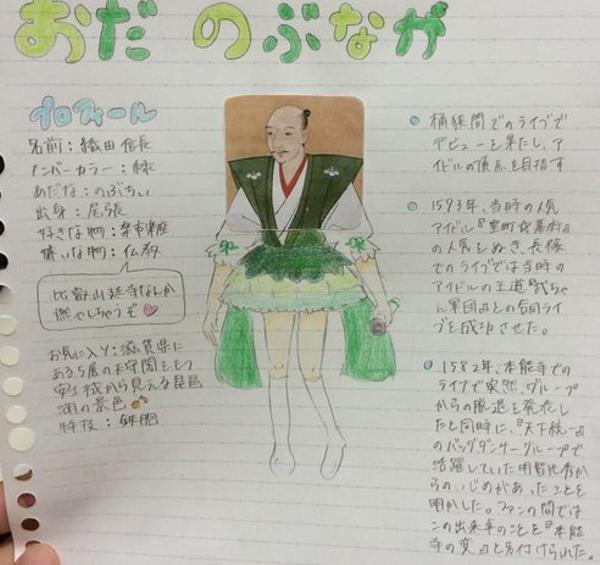 おだ のぶなが
プロフィール
名前：織田信長
メンバーカラー：緑
あだな：のぶちぃ
出身：尾張
好きな物：楽市楽座
嫌いな物：仏教
比叡山延暦寺なんか
燃やしちゃうぞ
お気に入り：滋賀県に
ある5層の天守閣をもつ
安土城から見える琵琶
湖の景色
特技：鉄砲
桶狭間でのライブで
デビューを果たし、ア
イドルの頂点を目指す
1573年、当時の人気
アイドル『室町☆幕府』
の人気をぬき、長篠
でのライブでは当時の
アイドルの王道『武ちゃ
ん軍団』との合同ライ
ブを成功させた。
1582年、本能寺での
ライブで突然、グループ
からの脱退を発表し
たと同時に、『天下統一』
のバックダンサーグループで
活躍していた明智光秀か
らのいじめがあったことを
明かした。ファンの間では
この出来事のことを『本能
寺の変』と名付けられた。